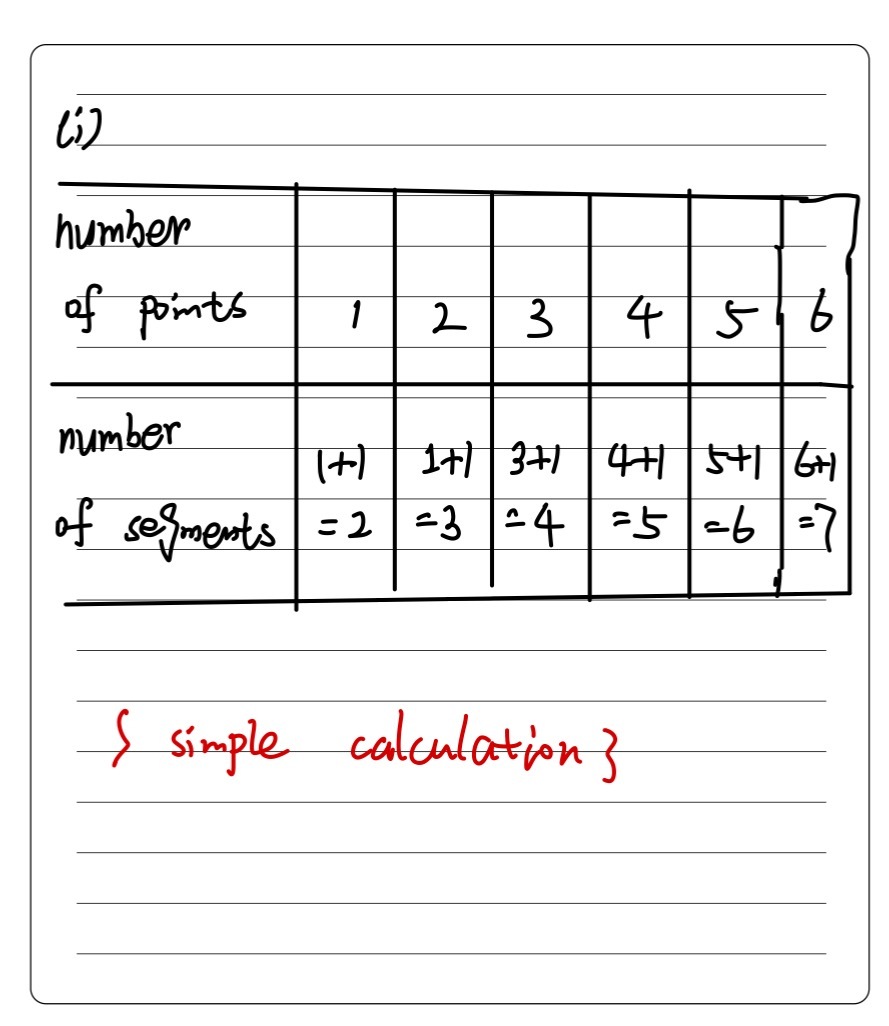 (i)
number
of points 1 2 3 4 5 6
number
1+1 1+1 3+1 4+1 5+1 6+1
of segments =2 =3 =4 =5 =6 =7
{ simple calculation }